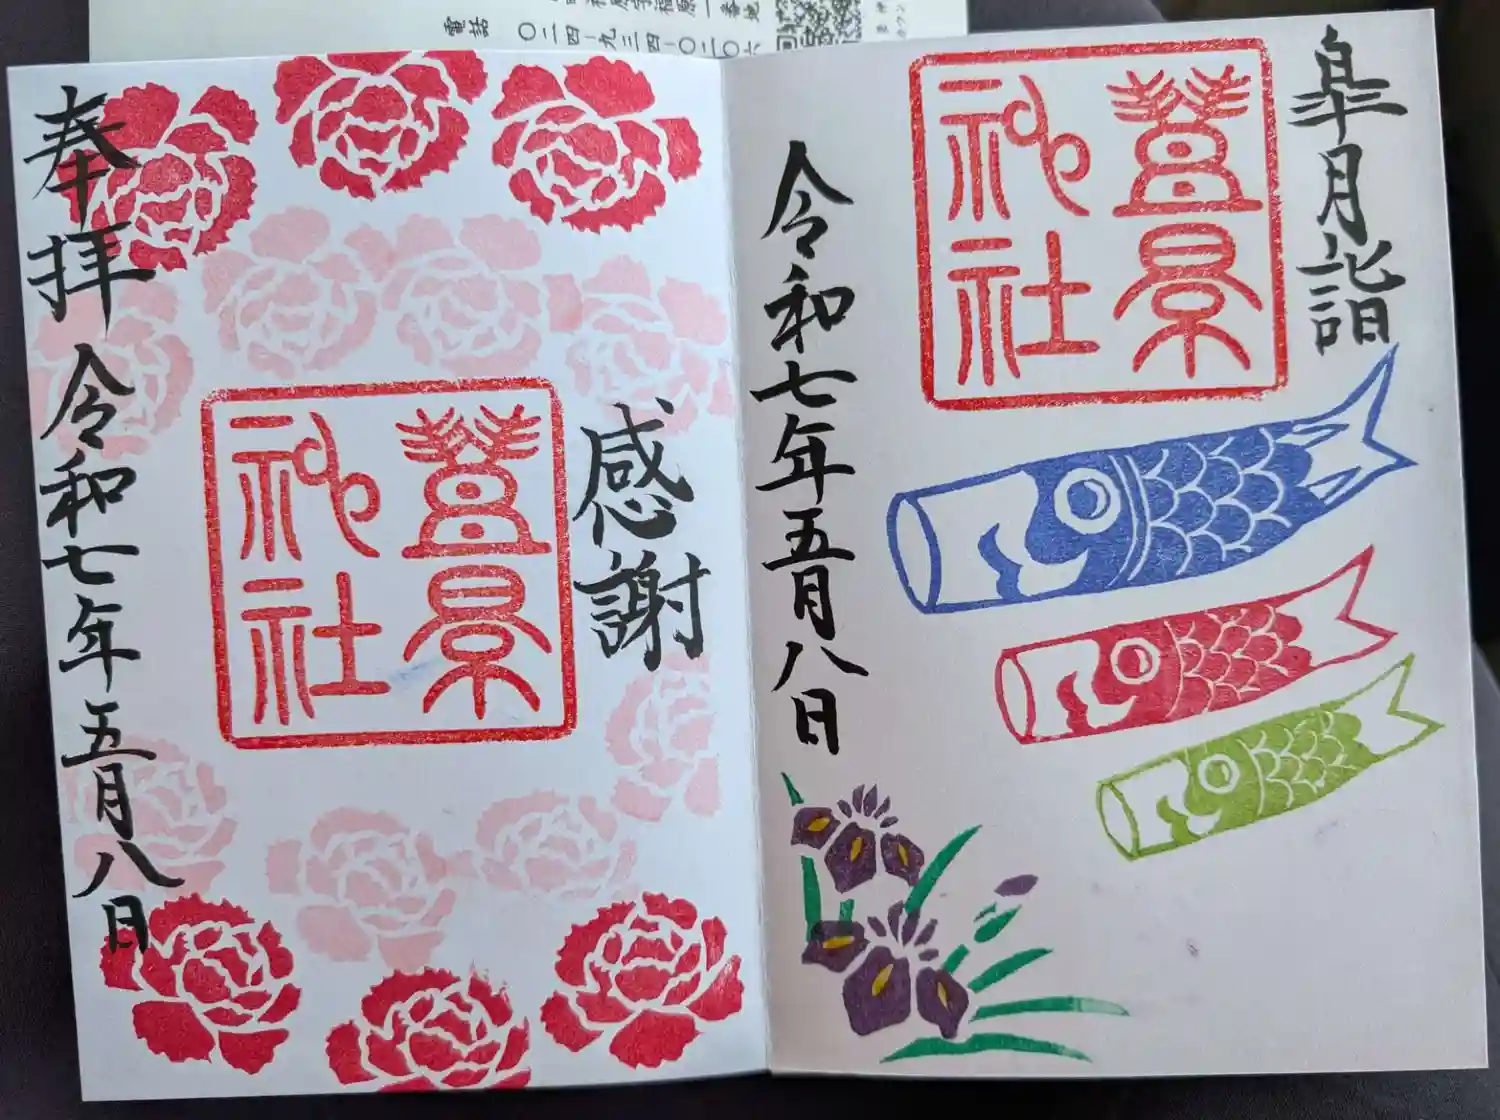 電話 〇二四-九三四-〇二〇六
皐月詣
豊景
神社
令和七年五月八日
感謝
豊景
神社
奉拝 令和七年五月八日